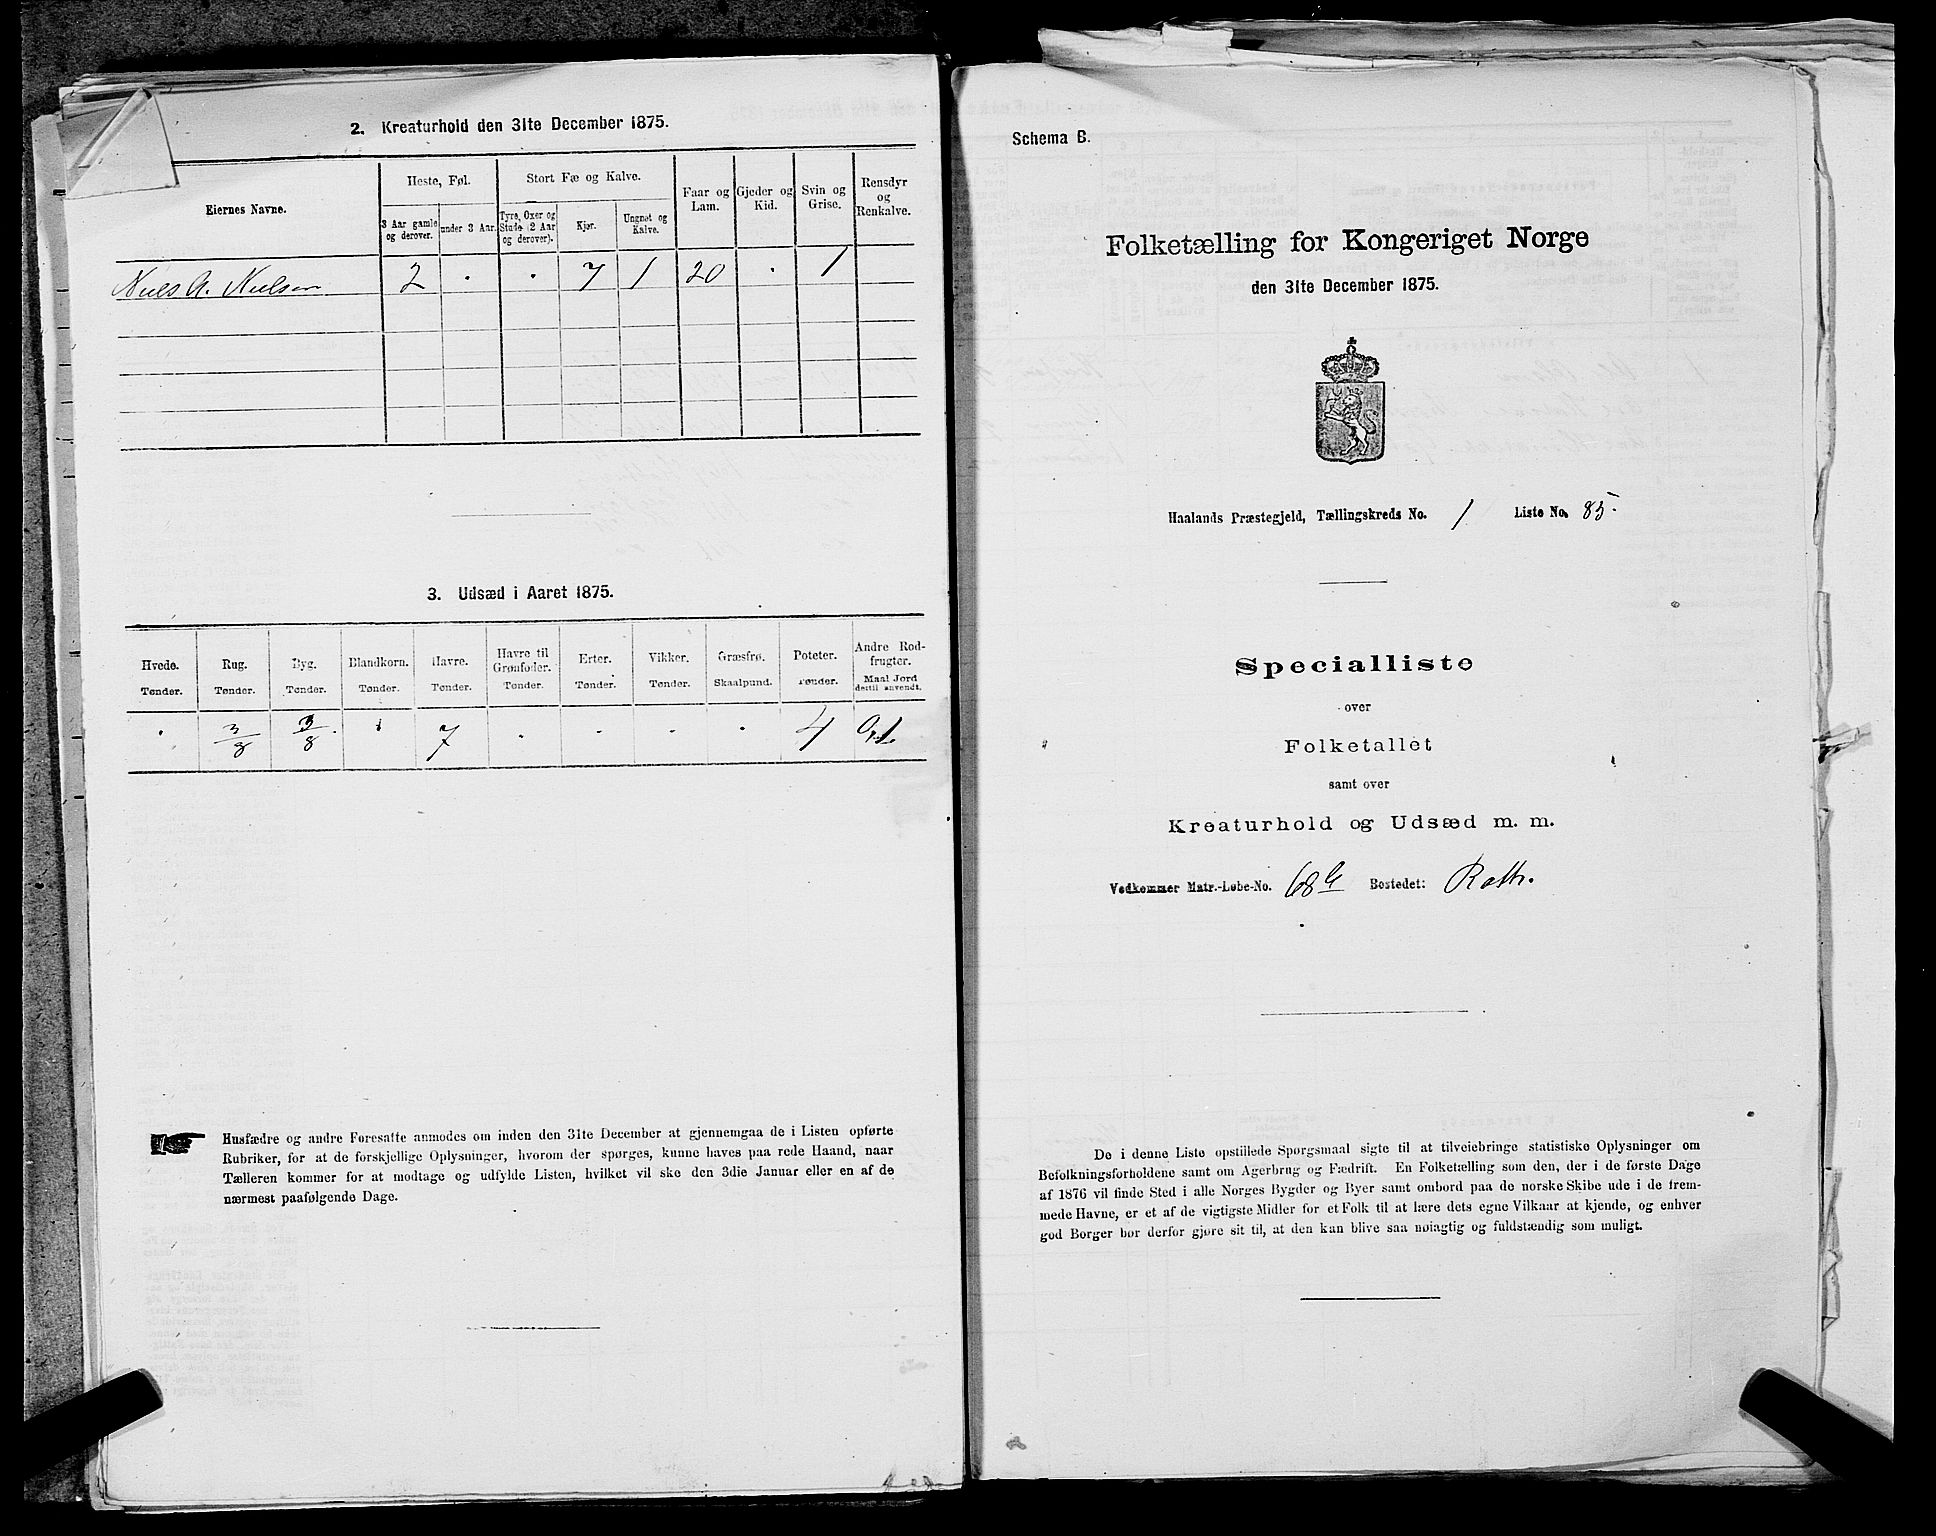 2. Kreaturhold den 31te December 1875.
Eiernes Navne.
Heste, Føl.
3 Aar gamle og derover.
under 3 Aar.
Stort Fæ og Kalve.
Tyre, Oxer og Stude (2 Aar og derover).
Kjør.
Ungnøt og Kalve.
Faar og Lam.
Gjeder og Kid.
Svin og Grise.
Rensdyr og Renkalve.
Niels A. Nielsen 2 . . 7 1 20 . 1
3. Udsæd i Aaret 1875.
Hvede. Rug. Byg. Blandkorn. Havre. Havre til Grønfoder. Erter. Vikker. Græsfrø. Poteter. Andre Rodfrugter.
Tønder. Tønder. Tønder. Tønder. Tønder. Tønder. Tønder. Tønder. Skaalpund. Tønder. Maal Jord dertil anvendt.
. 3/8 3/8 . 7 . . . . 4
Husfædre og andre Foresatte anmodes om inden den 31te December at gjennemgaa de i Listen opførte
Rubriker, for at de forskjellige Oplysninger, hvorom der spørges, kunne haves paa rede Haand, naar
Tælleren kommer for at modtage og udfylde Listen, hvilket vil ske den 3die Januar eller en af de
nærmest paafølgende Dage.
Schema B.
Folketælling for Kongeriget Norge
den 31te December 1875.
Haalands Præstegjeld, Tællingskreds No. 1 Liste No. 85.
Specialliste
over
Folketallet
samt over
Kreaturhold og Udsæd m. m.
Vedkommer Matr.-Løbe-No. 68 Bostedet: Roth.
De i denne Liste opstillede Spørgsmaal sigte til at tilveiebringe statistiske Oplysninger om
Befolkningsforholdene samt om Agerbrug og Fædrift. En Folketælling som den, der i de første Dage
af 1876 vil finde Sted i alle Norges Bygder og Byer samt ombord paa de norske Skibe ude i de frem-
mede Havne, er et af de vigtigste Midler for et Folk til at lære dets egne Vilkaar at kjende, og enhver
god Borger bør derfor gjøre sit til, at den kan blive saa nøiagtig og fuldstændig som muligt.